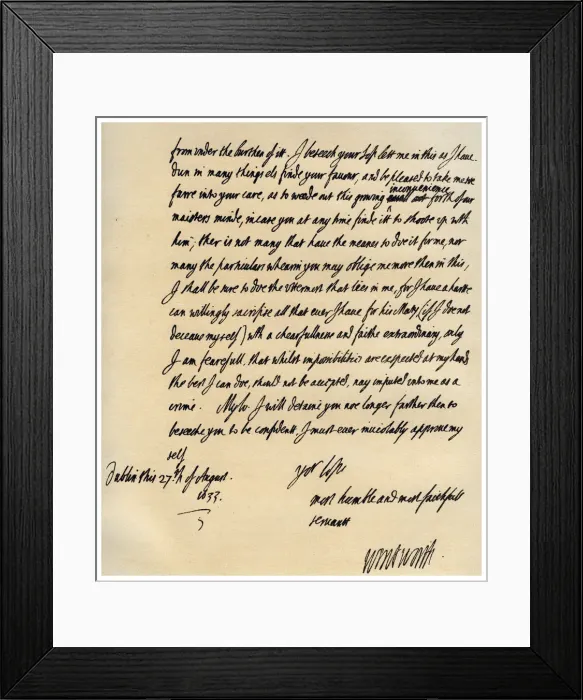 from under the burthen of itt. I beseech your Lops lett me in this as I have
dun in many things els finde your favour, and be pleased to take me soe
farre into your care, as to weede out this growing inconvenience out forth of our
maisters minde, incase you at any time finde itt to shoote up wth
him, ther is not many that have the meanes to doe it for me, nor
many the particulars whearin you may oblige me more then in this,
I shall be sure to doe the uttermost that lies in me, for I have a harte
can willingly sacrifise all that ever I have for his Maty (if I doe not
deceave myself) wth a chearfullness and faithe extraordinary, only
I am fearefull, that whilst impossibilities are expected at my hand
the best I can doe, should not be accepted, nay imputed unto me as a
crime. Mylo: I will detaine you noe longer farther then to
beseeche you to be confident, I must ever inviolably approve my
self
Dublin this 27th of August.
1633.
yor Lops
most humble and most faithfull
servant
Wentworth.